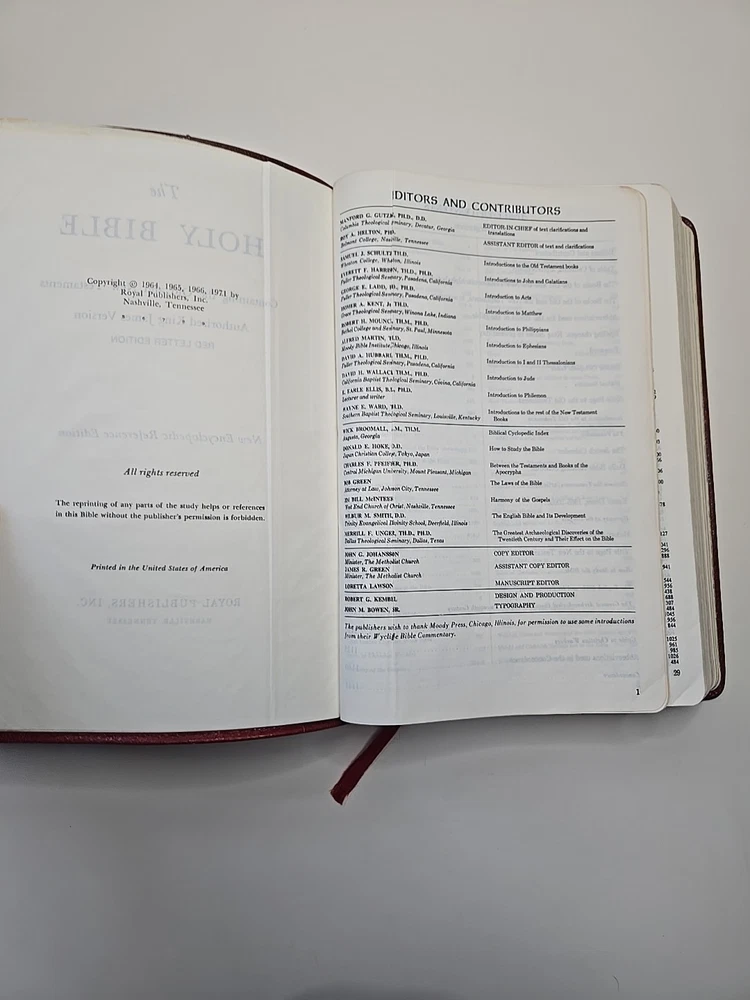 The
HOLY BIBLE
Copyright © 1964, 1965, 1966, 1971 by
Royal Publishers, Inc.
Nashville, Tennessee
Authorized King James Version
RED LETTER EDITION
New Encyclopedic Reference Edition
All rights reserved
The reprinting of any parts of the study helps or references
in this Bible without the publisher's permission is forbidden.
Printed in the United States of America
ROYAL PUBLISHERS, INC.
NASHVILLE, TENNESSEE
DITORS AND CONTRIBUTORS
MANFORD G. GUTZK, PH.D., D.D. EDITOR-IN-CHIEF of text clarifications and
Columbia Theological Seminary, Decatur, Georgia translations
A. HELTON, PH. ASSISTANT EDITOR of text and clarifications
Belmont College, Nashville, Tennessee
SAMUEL J. SCHULTZ TH.D. Introductions to the Old Testament books
Wheaton College, Wheaton, Illinois
EVERETT F. HARRISON, TH.D., PH.D. Introductions to John and Galatians
Fuller Theological Seminary, Pasadena, California
GEORGE E. LADD, PH.D. Introduction to Acts
Fuller Theological Seminary, Pasadena, California
HOMER A. KENT, Jr. TH.D. Introduction to Matthew
Grace Theological Seminary, Winona Lake, Indiana
ROBERT H. MOUNG, TH.M., PH.D. Introduction to Philippians
Bethel College and Seminary, St. Paul, Minnesota
ALFRED MARTIN, TH.D. Introduction to Ephesians
Moody Bible Institute, Chicago, Illinois
DAVID A. HUBBARD, TH.M., PH.D. Introduction to I and II Thessalonians
Fuller Theological Seminary, Pasadena, California
DAVID H. WALLACE TH.M., PH.D. Introduction to Jude
California Baptist Theological Seminary, Covina, California
E. EARLE ELLIS, B.D., PH.D. Introduction to Philemon
Lecturer and writer
WAYNE E. WARD, TH.D. Introductions to the rest of the New Testament
Southern Baptist Theological Seminary, Louisville, Kentucky Books
WICK BROOMALL, .M., TH.M. Biblical Cyclopedic Index
Augusta, Georgia
DONALD E. HOKE, D.D. How to Study the Bible
Japan Christian College, Tokyo, Japan
CHARLES F. PFEIFFER, PH.D. Between the Testaments and Books of the
Central Michigan University, Mount Pleasant, Michigan Apocrypha
BOB GREEN The Laws of the Bible
Attorney at Law, Johnson City, Tennessee
BILL McINTEES Harmony of the Gospels
Vest End Church of Christ, Nashville, Tennessee
WILBUR M. SMITH, D.D. The English Bible and Its Development
Trinity Evangelical Divinity School, Deerfield, Illinois
MERRILL F. UNGER, TH.D., PH.D. The Greatest Archaeological Discoveries of the
Dallas Theological Seminary, Dallas, Texas Twentieth Century and Their Effect on the Bible
JOHN G. JOHANSSON COPY EDITOR
Minister, The Methodist Church
JAMES R. GREEN ASSISTANT COPY EDITOR
Minister, The Methodist Church
LORETTA LAWSON MANUSCRIPT EDITOR
ROBERT G. KEMBEL DESIGN AND PRODUCTION
JOHN M. BOWEN, SR. TYPOGRAPHY
The publishers wish to thank Moody Press, Chicago, Illinois, for permission to use some introductions
from their Wycliffe Bible Commentary.
1
127
296
888
941
544
956
438
688
307
484
045
956
844
1025
961
985
1026
484
39